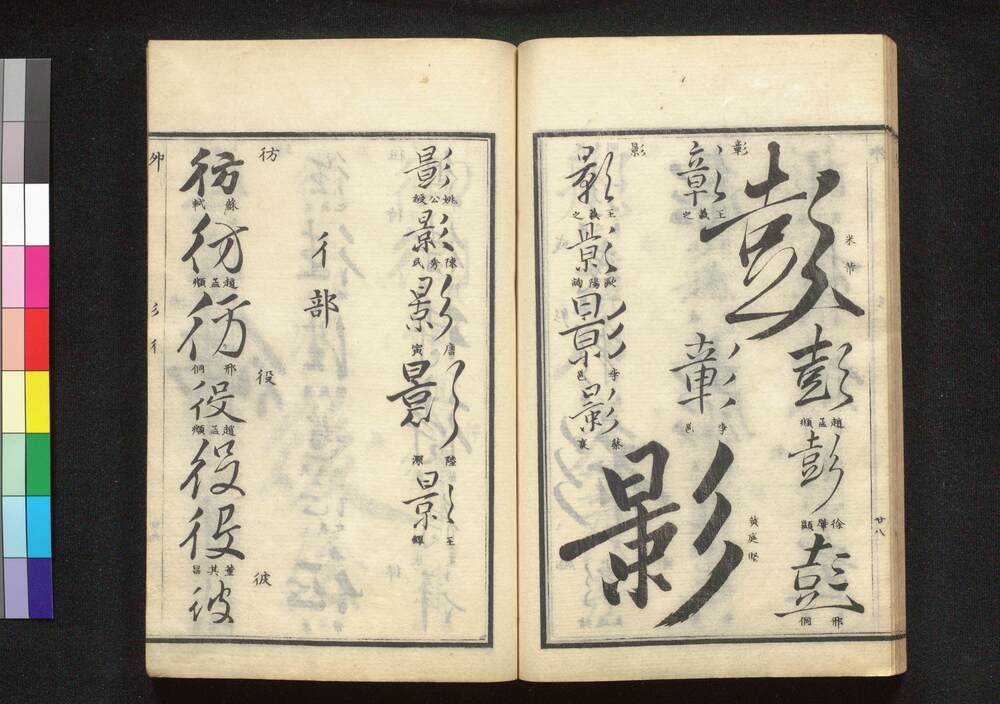 彭
米芾
彭
趙孟頫
彭
徐肇顯
彭
邢侗
廿八
彰
彰
王羲之
彰
李邕
影
黄庭堅
影
影
王羲之
影
歐陽詢
影
李邕
影
蔡襄
影
姚公綬
影
陳秀民
影
唐寅
影
陸深
影
王鐸
彳部
彷
役
彼
彷
蘇軾
彷
趙孟頫
彷
邢侗
役
趙孟頫
役
役
董其昌
彼
彡彳